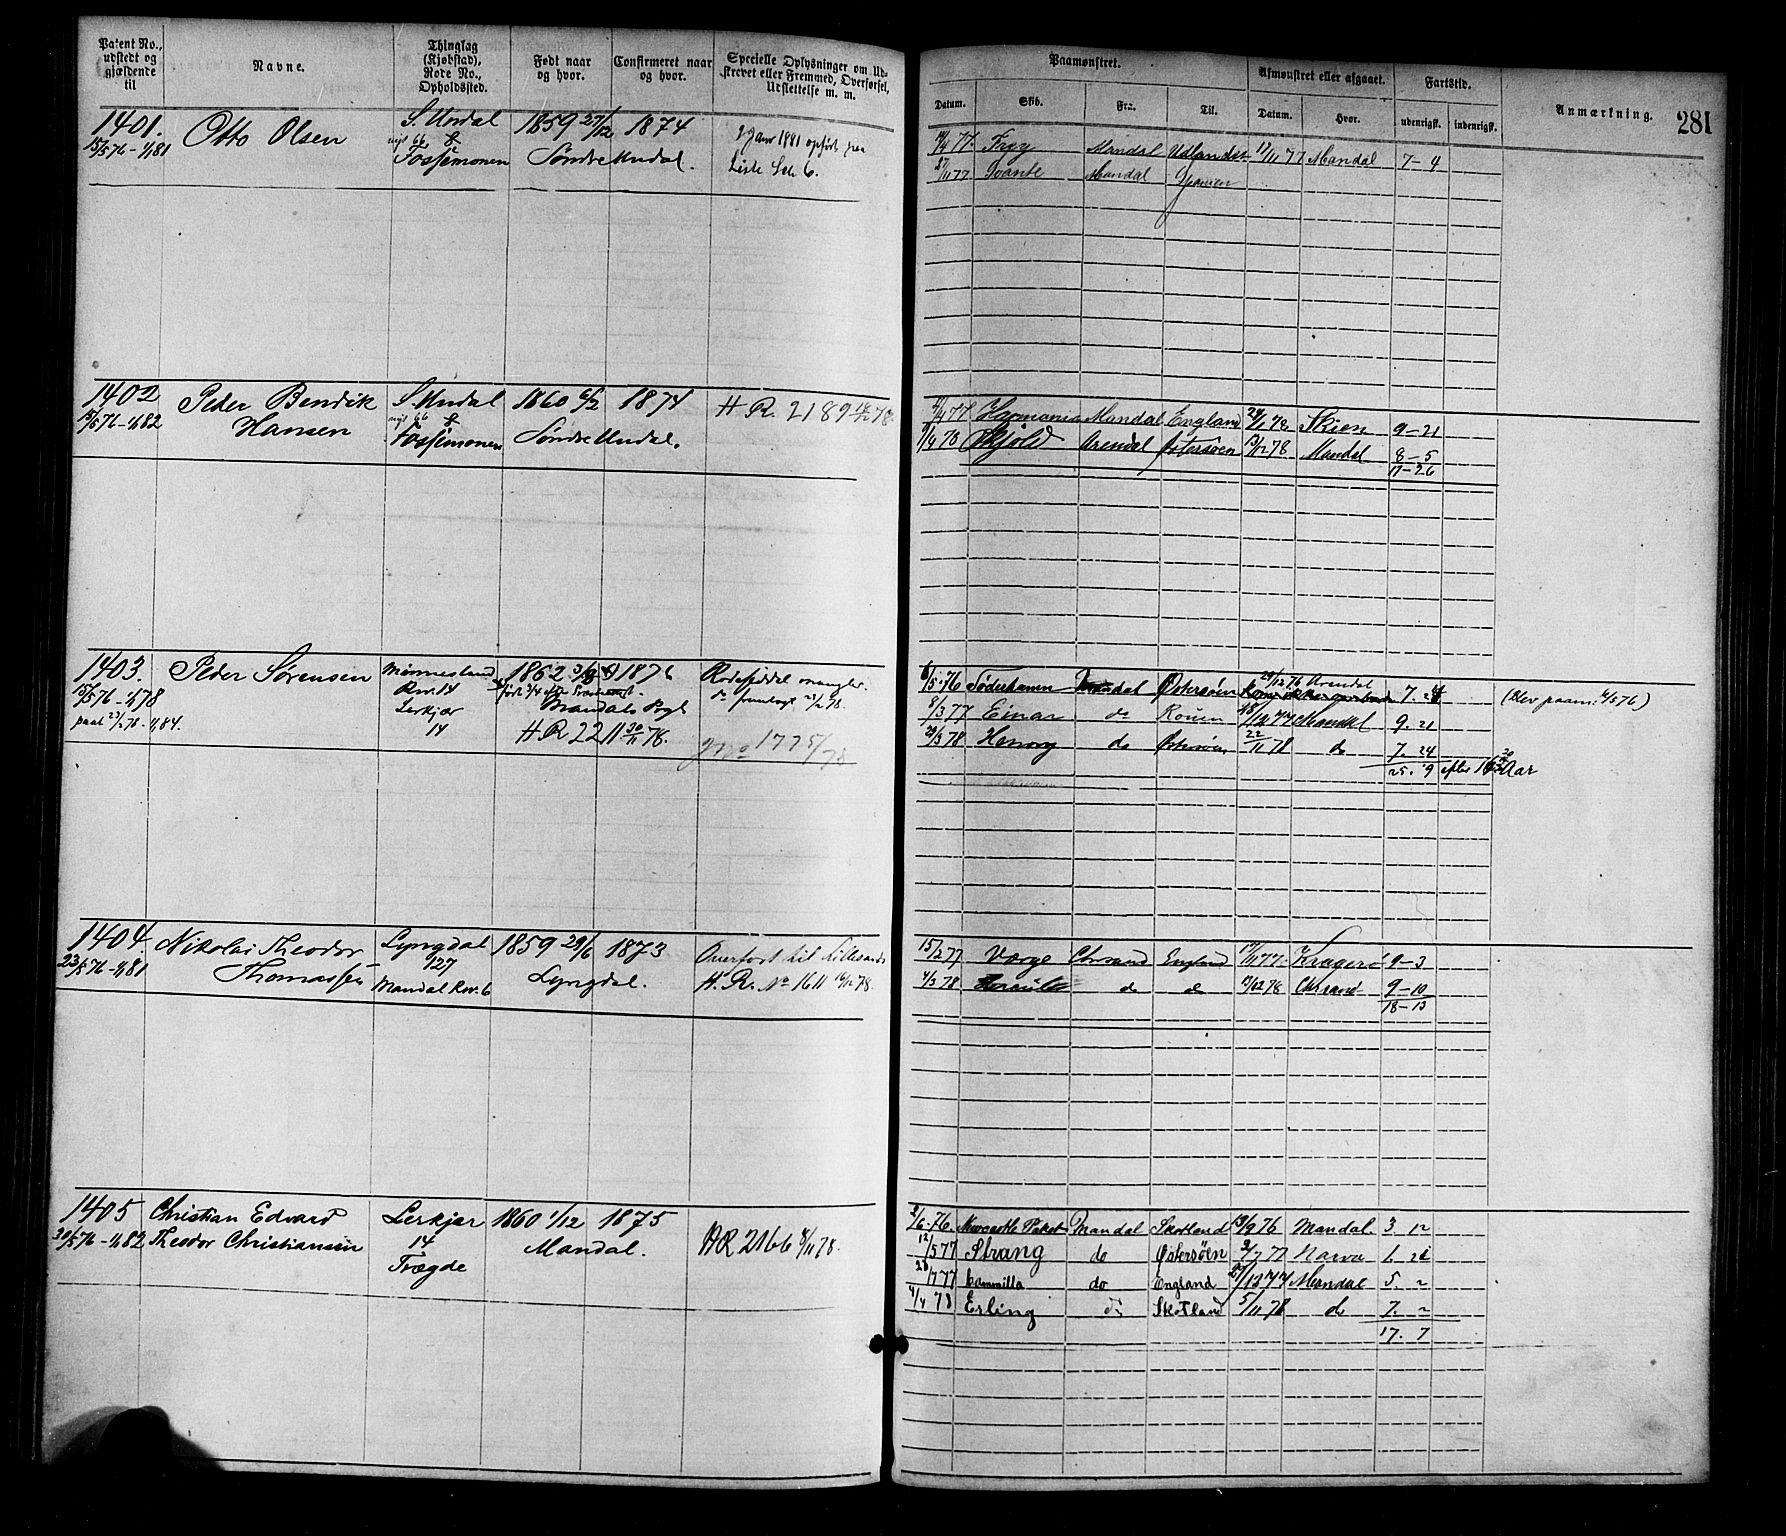 Patent No., udstedt og gjældende til
Navne.
Thinglag (Kjøbstad), Rode No., Opholdssted.
Født naar og hvor.
Confirmeret naar og hvor.
Specielle Oplysninger om Udskrevet eller Fremmed, Overførsel, Udslettelse m. m.
Paamønstret.
Afmønstret eller afgaaet.
Fartstid.
Anmærkning.
281
Datum.
Skib.
Fra.
Til.
Datum.
Hvor.
udenrigsk.
indenrigsk.
1401.
15/5 76 - 1/1 81
Otto Olsen
S. Undal
66
Fossemonen
1859 27/12 1874
Søndre Undal.
Liste Lit 6.
14/4 77. Frey Mandal Udlandet 17/11 77 Mandal 7-4
27/11 77 Svante Mandal Spanien
1402
15/5 76 - 1/1 82
Peder Bendik
Hansen
S. Undal
66
Fossemonen
1860 6/2 1874
Søndre Undal.
HR. 2189 78.
77 Harmonia Mandal England 78 Skien 9-21
78 Skjold Arendal Østersøen 13/12 78 Mandal 8-5
17-26
1403.
15/5 76 - 1/1 78
Peder Sørensen
Mønnesland
Rev. 14
Lerkjær
14
1862 1876
Mandals Pgl
HR 2211 30/11 78.
Rodeseddel mangler.
do fremlagt 23/2 78.
No 1775/78
6/5. 76 Søderhamn Mandal Østersøen 29/12 76 Arendal 7.
(blev paam: 76)
8/3 77 Einar do Rouen 18/12 77 Mandal 9. 21
29/3 78 Henry do Østersøen 22/11 78 do 7. 24
25. 9 efter Aar
1404.
23/5 76 - 1/1 81
Nikolai Theodor
Thomassen
Lyngdal
127
Mandal Rev. 6
1859 29/6 1873
Lyngdal.
Overført til Lillesands
H. R. No 1611 78.
15/2 77 Varge Chrsand England 17/11 77. Kragerø 9-3
4/3 78 do d 78 Chrsand 9-10
18-13
1405
30/5 76 - 1/1 82
Christian Edvard
Theodor Christiansen
Lerkjær
14
Trægde
1860 1/12 1875
Mandal.
HR 2166 8/11 78.
2/6. 76. Newcastle Paket Mandal Skotland 13/9 76 Mandal. 3 12
12/5 77 Strang do Østersøen 2/7 77 Narva
28/7 77 Cammilla do England 77 Mandal 5. 2
4/4 78 Erling do Skotland 5/11 78 do 7. 2
17. 7